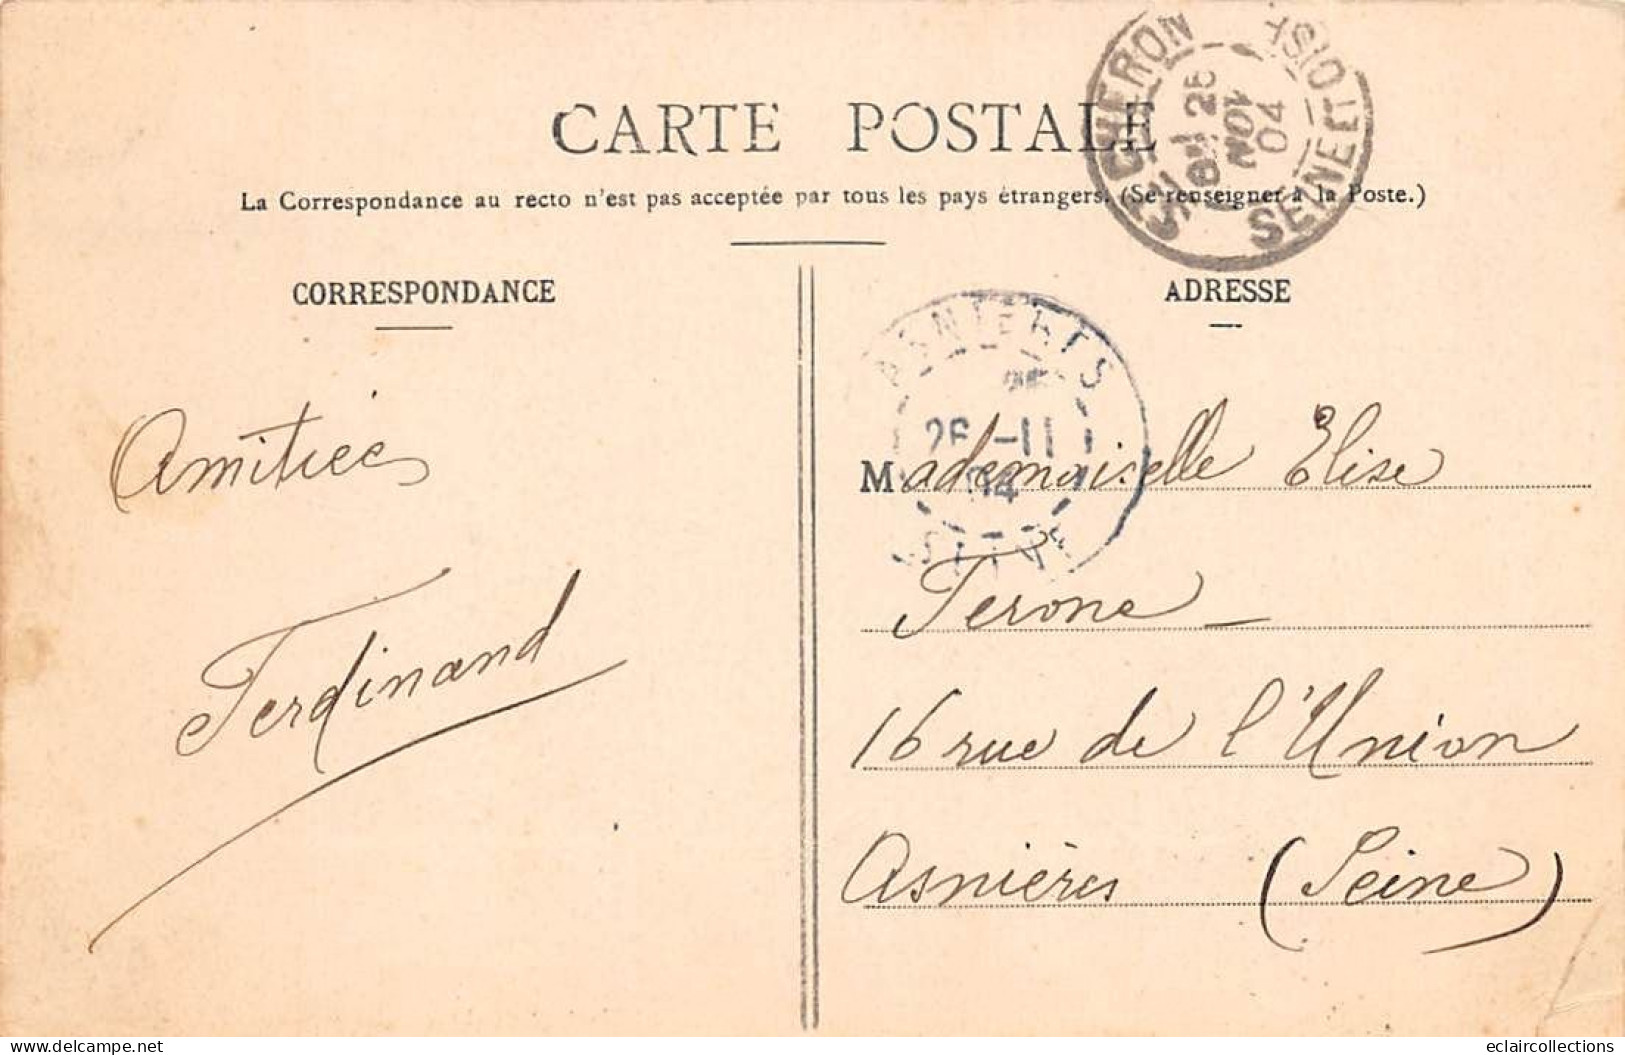 CARTE POSTALE
La Correspondance au recto n'est pas acceptée par tous les pays étrangers. (Se renseigner à la Poste.)
CORRESPONDANCE
ADRESSE
ST CHERON
25
NOV
04
SEINE ET OISE
ASNIERES
26 -11
04
SEINE
Amitiés
Ferdinand
Mademoiselle Elise
Ferone
16 rue de l'Union
Asnières (Seine)
www.delcampe.net
eclaircollections